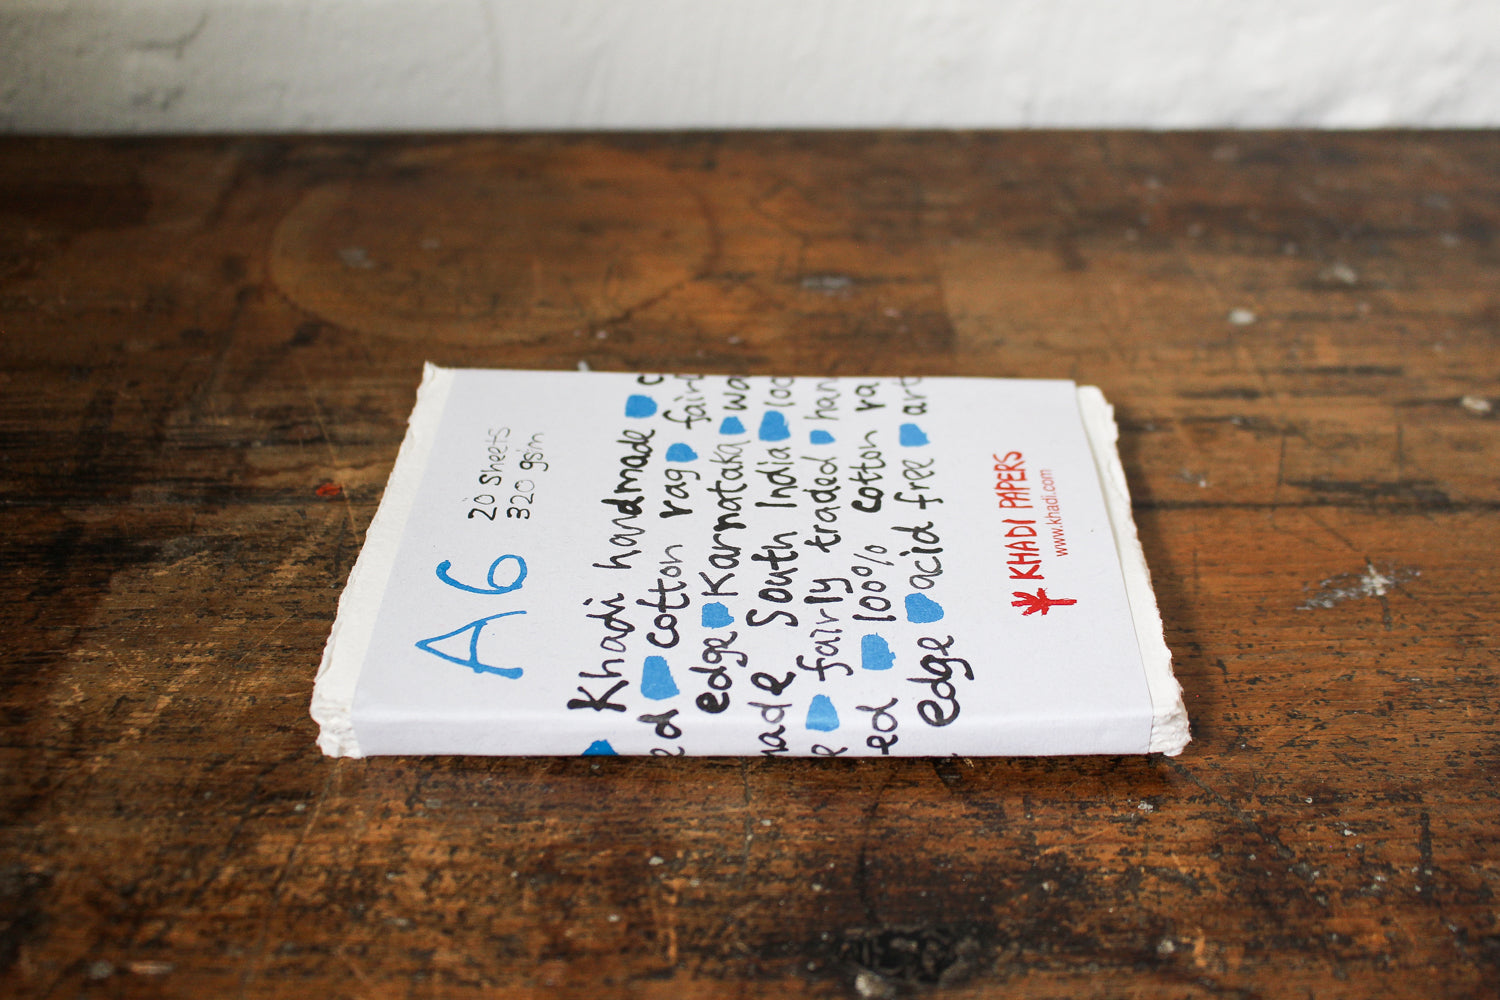 A6
20 sheets
320 gsm
Khadi handmade
cotton rag fair
edge Karnataka
South India 100
fairly traded
100% cotton
edge acid free art
KHADI PAPERS
www.khadi.com